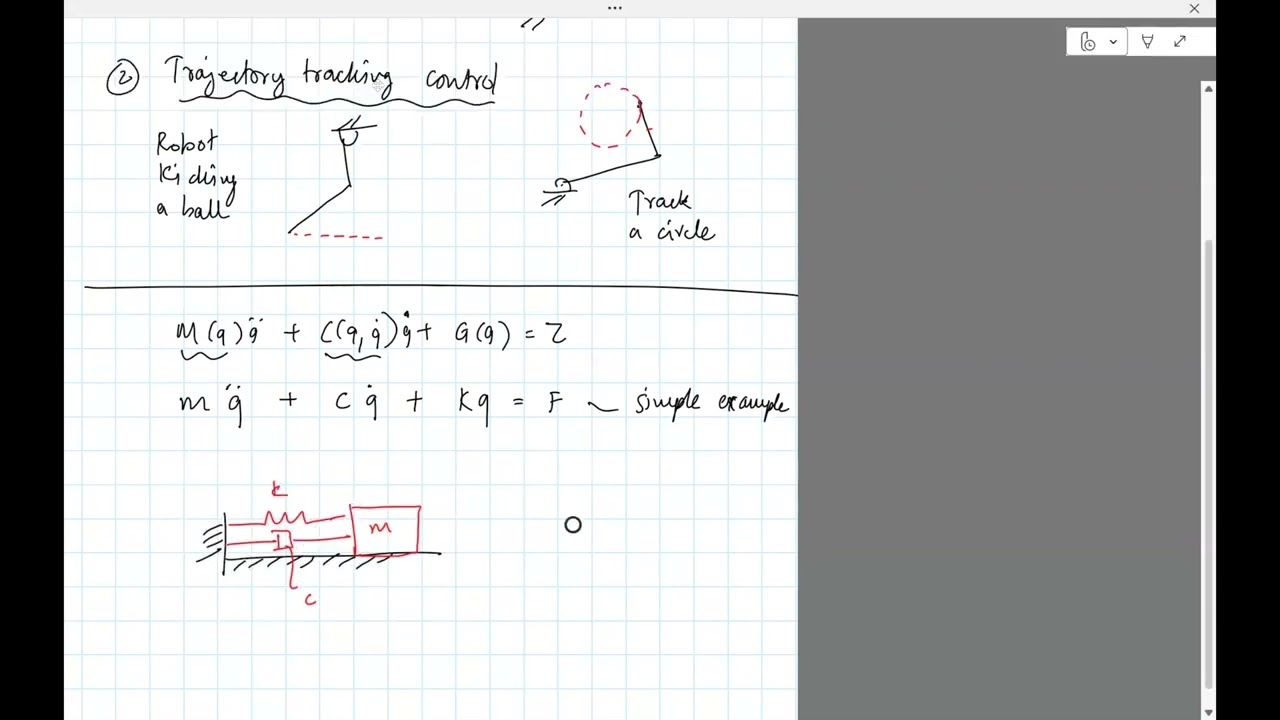 ② Trajectory tracking control
Robot
Kicking
a ball
Track
a circle
M(q)q̈ + C(q,q̇)q̇ + G(q) = τ
m q̈ + C q̇ + Kq = F ~ simple example
k
m
c